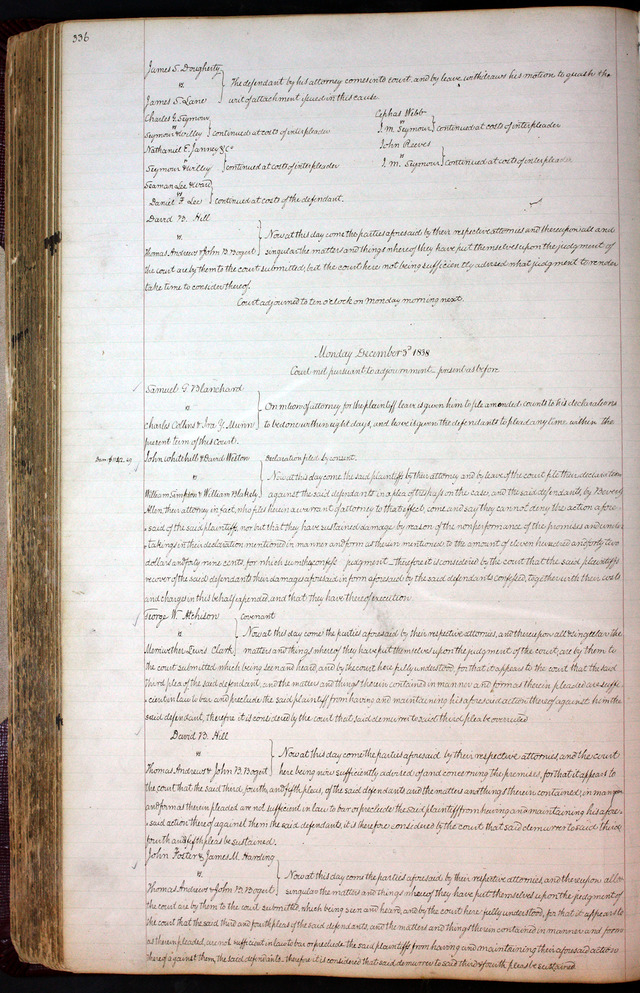 336
James S. Dougherty
vs
James S. Lane
The defendant by his attorney comes into court, and by leave withdraws his motion to quash the
writ of attachment issued in this cause.
Charles G. Seymour
vs
Seymour & Willey
continued at costs of interpleader
Cephas Webb
vs
I. M. Seymour
continued at costs of interpleader
Nathaniel E. Janney & Co
vs
Seymour & Willey
continued at costs of interpleader
John Reeves
vs
I. M. Seymour
continued at costs of interpleader
Seaman Lee & Ward
vs
Daniel F. Lee
continued at costs of the defendant.
David B. Hill
vs
Thomas Andrews & John B. Bogert
Now at this day come the parties aforesaid by their respective attornies and thereupon all and
singular the matters and things where of they have put themselves upon the judgment of
the court are by them to the court submitted; but the court here not being sufficiently advised what judgment to render
take time to consider thereof.
Court adjourned to ten o'clock on Monday morning next.
Monday December 3d 1838
Court met pursuant to adjournment present as before
Samuel G. Blanchard
vs
Charles Collins & Ira Y. Munn
On motion of attorney for the plaintiff leave is given him to file amended counts to his declarations
to be done within eight days, and leave is given the defendants to plead any time within the
present term of this Court.
Dam. $1142.49
John Whitehill & David Weston
vs
William Simpson & William Blakely
Declaration filed by consent.
Now at this day come the said plaintiffs by their attorney and by leave of the court file their declaration
against the said defendants in a plea of trespass on the case, and the said defendants, by Beverly
Allen, their attorney in fact, who files herein a warrant of attorney to that effect, come and say they cannot deny the action afore
said of the said plaintiffs, nor but that they have sustained damage by reason of the nonperformance of the promises and under
takings in their declaration mentioned in manner and form as therein mentioned to the amount of eleven hundred and forty two
dollars and forty nine cents, for which sum they confess judgment. Therefore it is considered by the court that the said plaintiffs
recover of the said defendants their damages aforesaid in form aforesaid by the said defendants confessed, together with their costs
and charges in this behalf expended, and that they have thereof execution.
George W. Atchison
vs
Meriwether Lewis Clark
covenant
Now at this day come the parties aforesaid by their respective attornies, and thereupon all & singular the
matters and things where of they have put themselves upon the judgment of the court, are by them to
the court submitted which being seen and heard, and by the court here fully understood, for that it appears to the court that the said
third plea of the said defendant, and the matters and things therein contained in manner and form as therein pleaded are suffi
cient in law to bar and preclude the said plaintiff from having and maintaining his aforesaid action thereof against him the
said defendant, therefore it is considered by the court that said demurrer to said third plea be overruled
David B. Hill
vs
Thomas Andrews & John B. Bogert
Now at this day come the parties aforesaid by their respective attornies, and the court
here being now sufficiently advised of and concerning the premises, for that it appears to
the court that the said third, fourth and fifth pleas, of the said defendants and the matters and things therein contained, in manner
and form as therein pleaded are not sufficient in law to bar or preclude the said plaintiff from having and maintaining his afore
said action thereof against them the said defendants, it is therefore considered by the court that said demurrer to said third
fourth and fifth pleas be sustained.
John Foster & James M. Harding
vs
Thomas Andrews & John B. Bogert
Now at this day come the parties aforesaid by their respective attornies, and thereupon all &
singular the matters and things where of they have put themselves upon the judgment of
the court are by them to the court submitted, which being seen and heard, and by the court here fully understood, for that it appears to
the court that the said third and fourth pleas of the said defendants, and the matters and things therein contained in manner and form
as therein pleaded, are not sufficient in law to bar or preclude the said plaintiffs from having and maintaining their aforesaid action
thereof against them, the said defendants. therefore it is considered that said demurrer to said third & fourth pleas be sustained.